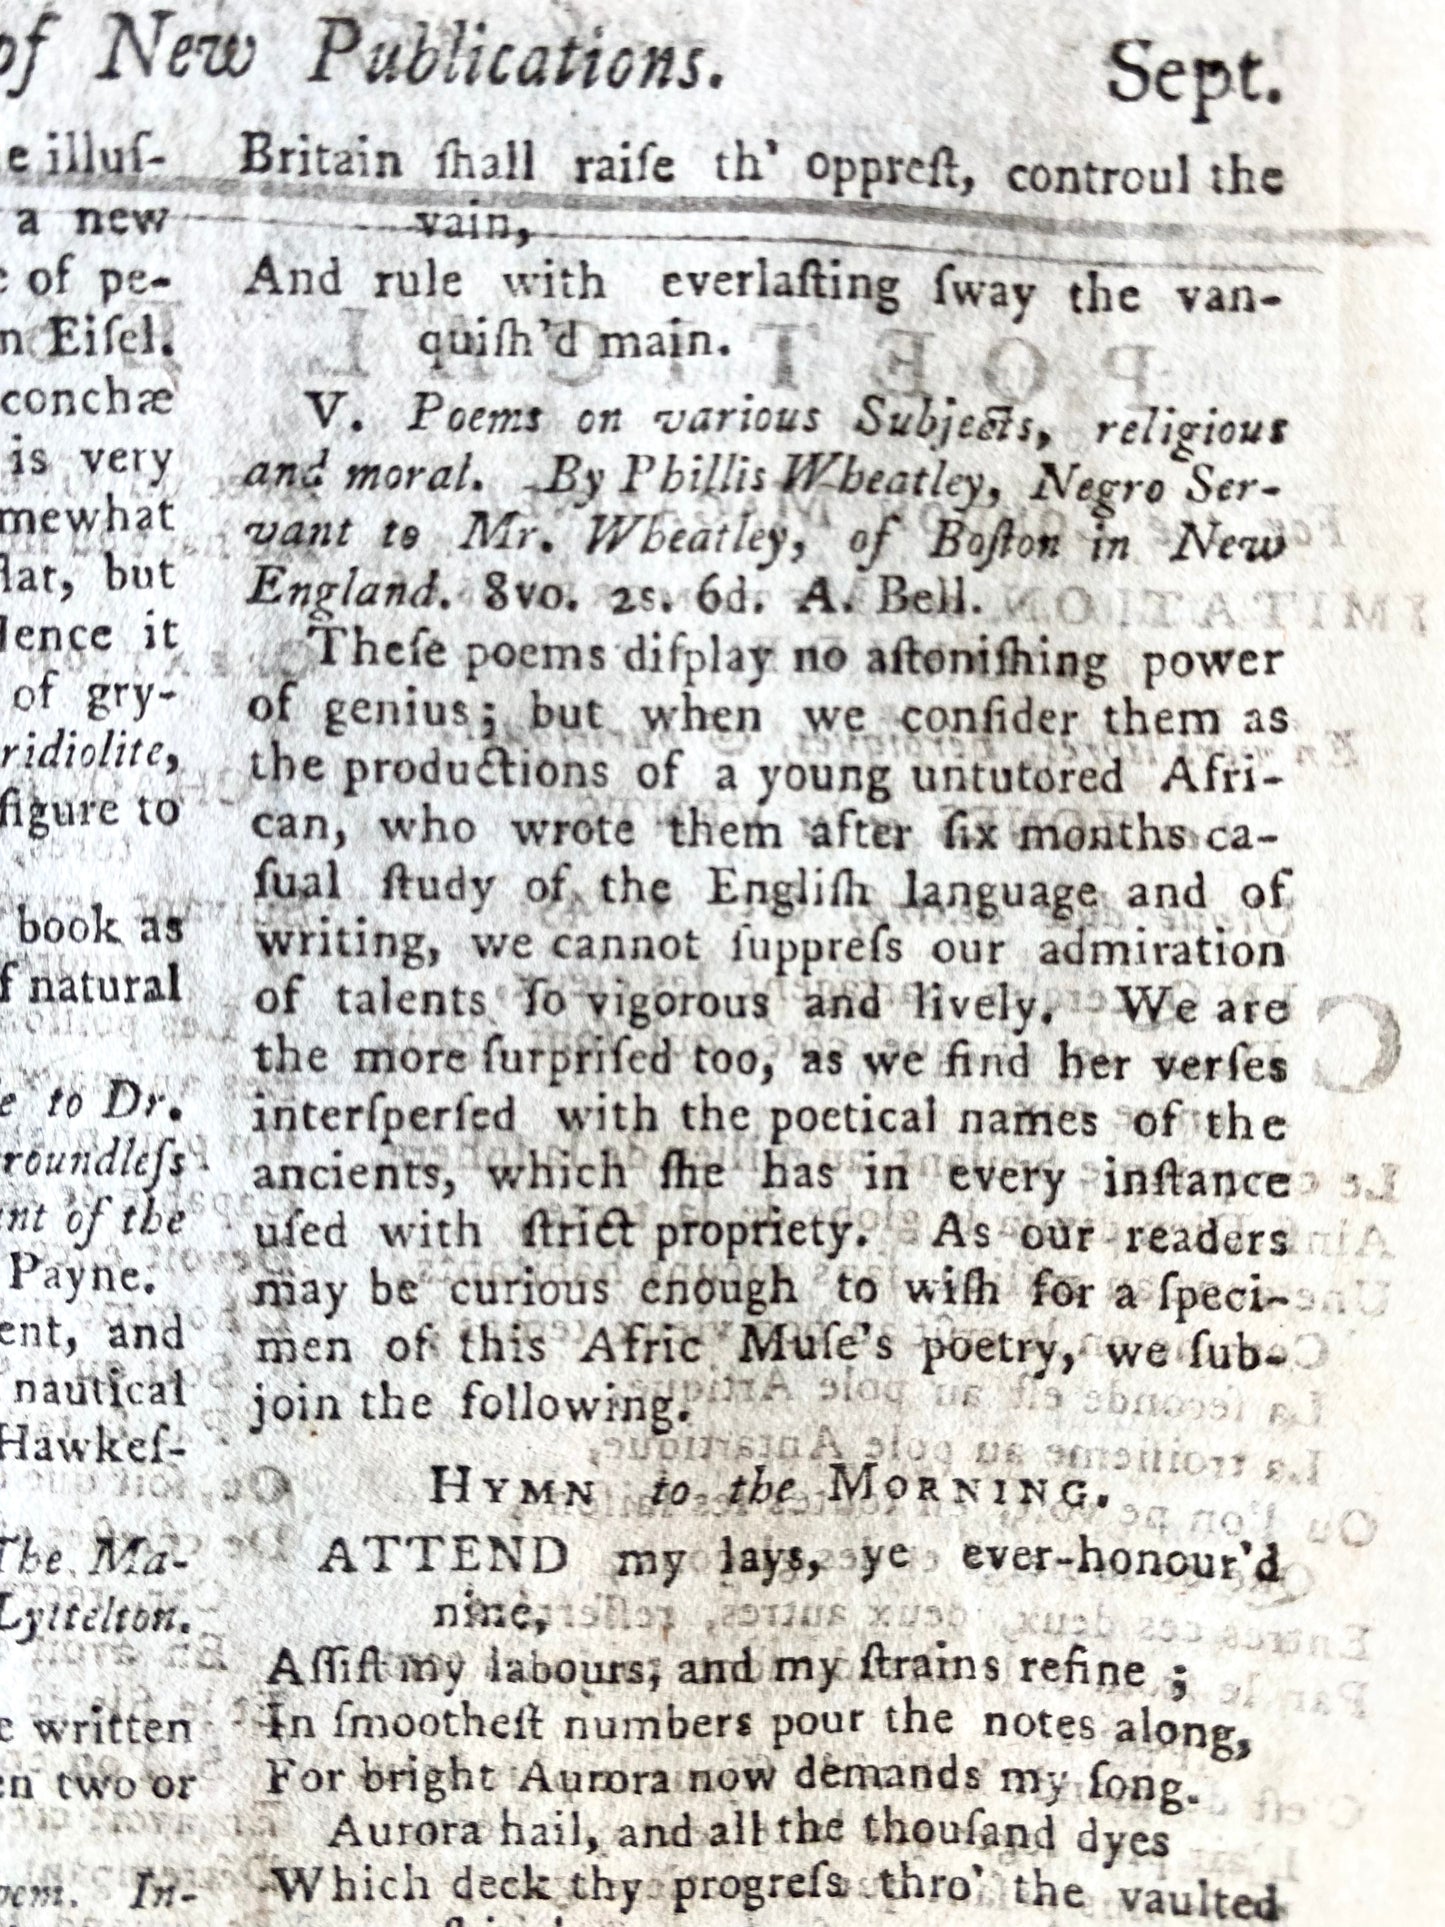 of New Publications. Sept.
e illuſ-
a new
of pe-
n Eiſel.
conchæ
is very
mewhat
flat, but
Hence it
of gry-
ridiolite,
figure to
book as
f natural
e to Dr.
roundleſs
nt of the
Payne.
ent, and
nautical
Hawkeſ-
The Ma-
Lyttelton.
e written
en two or
oem. In-
Britain ſhall raiſe th' oppreſt, controul the
vain,
And rule with everlaſting ſway the van-
quiſh'd main.
V. Poems on various Subjects, religious
and moral. By Phillis Wheatley, Negro Ser-
vant to Mr. Wheatley, of Boſton in New
England. 8vo. 2s. 6d. A. Bell.
Theſe poems diſplay no aſtoniſhing power
of genius; but when we conſider them as
the productions of a young untutored Afri-
can, who wrote them after ſix months ca-
ſual ſtudy of the Engliſh language and of
writing, we cannot ſuppreſs our admiration
of talents ſo vigorous and lively. We are
the more ſurpriſed too, as we find her verſes
interſperſed with the poetical names of the
ancients, which ſhe has in every inſtance
uſed with ſtrict propriety. As our readers
may be curious enough to wiſh for a ſpeci-
men of this Afric Muſe's poetry, we ſub-
join the following.
HYMN to the MORNING.
ATTEND my lays, ye ever-honour'd
nine,
Aſſiſt my labours, and my ſtrains refine;
In ſmootheſt numbers pour the notes along,
For bright Aurora now demands my ſong.
Aurora hail, and all the thouſand dyes
Which deck thy progreſs thro' the vaulted